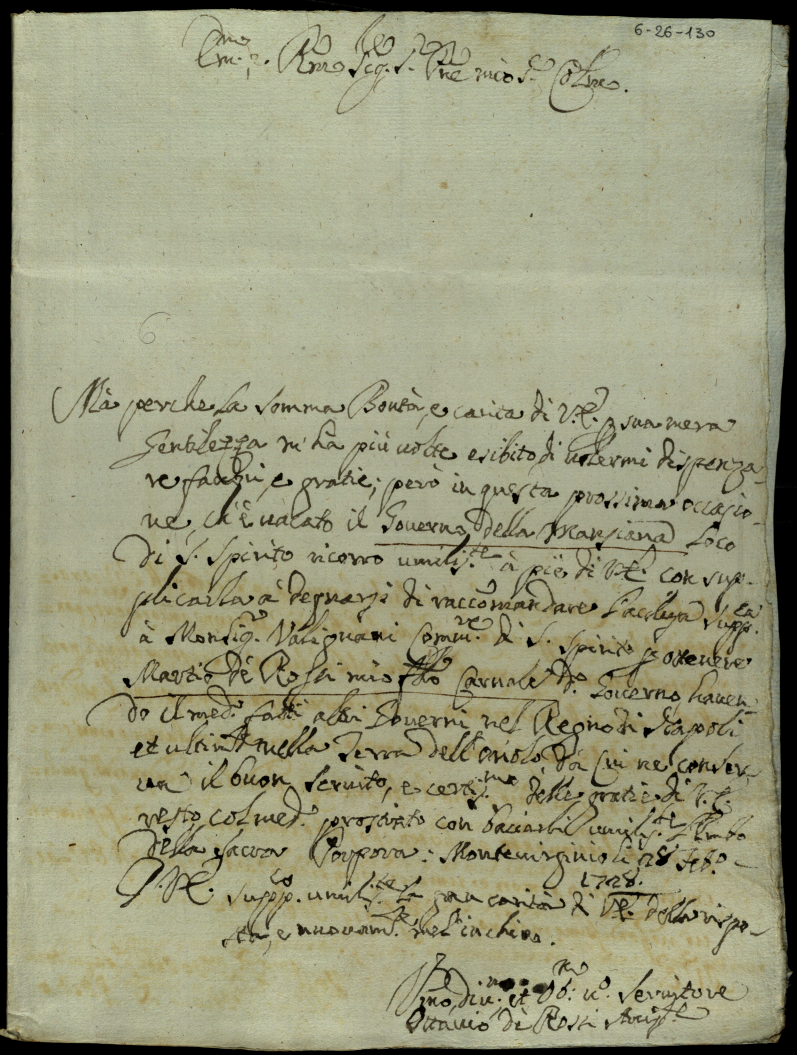 6-26-130
Em.mo e Rmo Sig. S. Pne mio S. Colmo.
6
Mà perche la somma Bontà, e carità di V.E. p sua mera
Gentilezza m'hà più volte esibito di volermi dispenza-
re favori, e gratie; però in questa prossima occasio-
ne, ch'è vacato il Governo della Manziana loco
di S. Spirito ricorro umilis.te à piè di V.E. con sup-
plicarla à degnarsi di raccomandare l'acclusa supp.ca
à Monsig.r Valignani Comm.re di S. Spirito p ottenere
Martio dè Rossi mio fllo Carnale d.o Governo, haven-
do il med.o fatti altri Governi nel Regno di Napoli
et ultim.te nella Terra dell'oriolo, da cui ne conser-
va il buon servito, e certis.mo delle gratie di V.E.
resto col med.o prostrato con baciarli umilis.te il lembo
della sacra Porpora. Montevirginio li 28 Feb.o
1728.
D. V.E. supp.co umilis.te la gran carità di V.E. della rispo-
sta, e nuovam.te mel'inchino.
Umo, div.mo et Ob.mo v.o Servitore
Ottavio dè Rossi Arcip.te